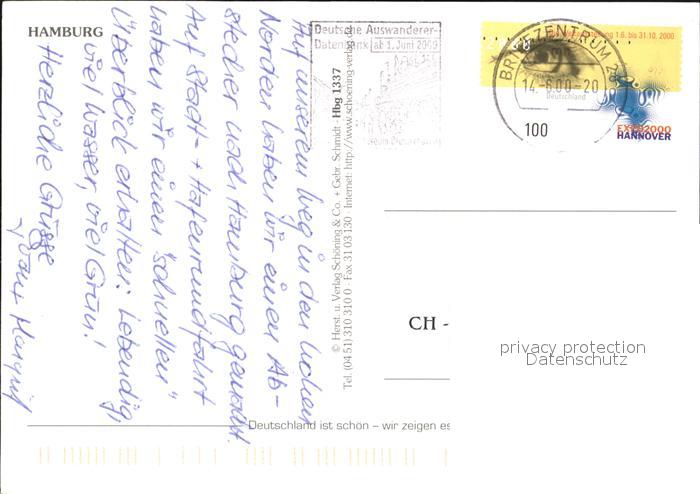 HAMBURG
Auf unserem Weg in den hohen
Norden haben wir einen Ab-
stecher nach Hamburg gemacht.
Auf Stadt- + Hafenrundfahrt
haben wir einen "schnellen"
Überblick erhalten: Lebendig,
viel Wasser, viel Grün!
Herzliche Grüsse
© Herst. u. Verlag Schöning & Co. + Gebr. Schmidt · Hbg 1337
Tel. (04 51) 310 310 0 · Fax 31 03 130 · Internet: http://www.schoening-verlag.de
Deutsche Auswanderer-
Datenbank ab 1. Juni 2000
BRIEFZENTRUM
14.-6.00-20
100
1.6. bis 31.10. 2000
Deutschland
EXPO2000
HANNOVER
CH -
privacy protection
Datenschutz
Deutschland ist schön – wir zeigen es